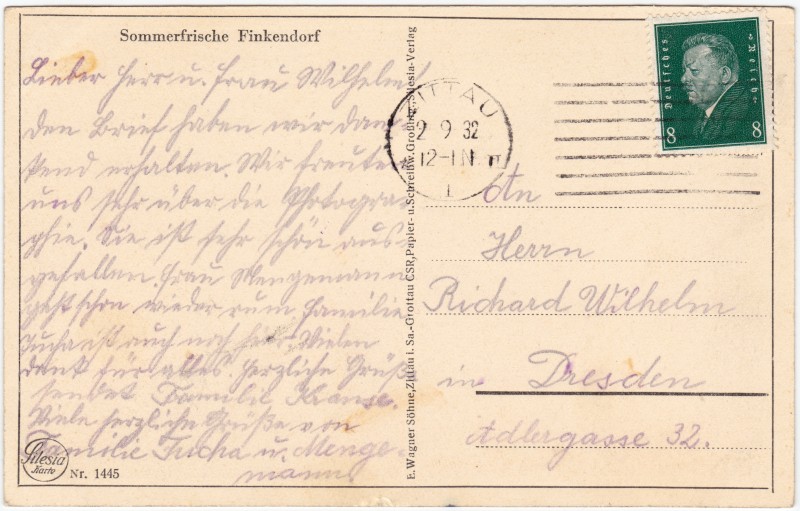 Sommerfrische Finkendorf
Lieber Herr u. Frau Wilhelm!
den Brief haben wir dan-
kend erhalten. Wir freuten
uns sehr über die Photogra-
phie. Sie ist sehr schön aus-
gefallen. Frau Mengemann
geht schon wieder rum. Familie
Tucha ist auch noch hier. Vielen
dank für alles. Herzliche Grüße
sendet Familie Krause.
Viele herzliche Grüße von
Familie Tucha u. Menge-
manns
Silesia
Karte
Nr. 1445
E. Wagner Söhne, Zittau i. Sa.-Grottau CSR, Papier- u. Schreibw. Großhdlg., Silesia-Verlag
ZITTAU
2 9 32
12-1 N
1
Deutsches
Reich
8
8
An
Herrn
Richard Wilhelm
in Dresden
Adlergasse 32.